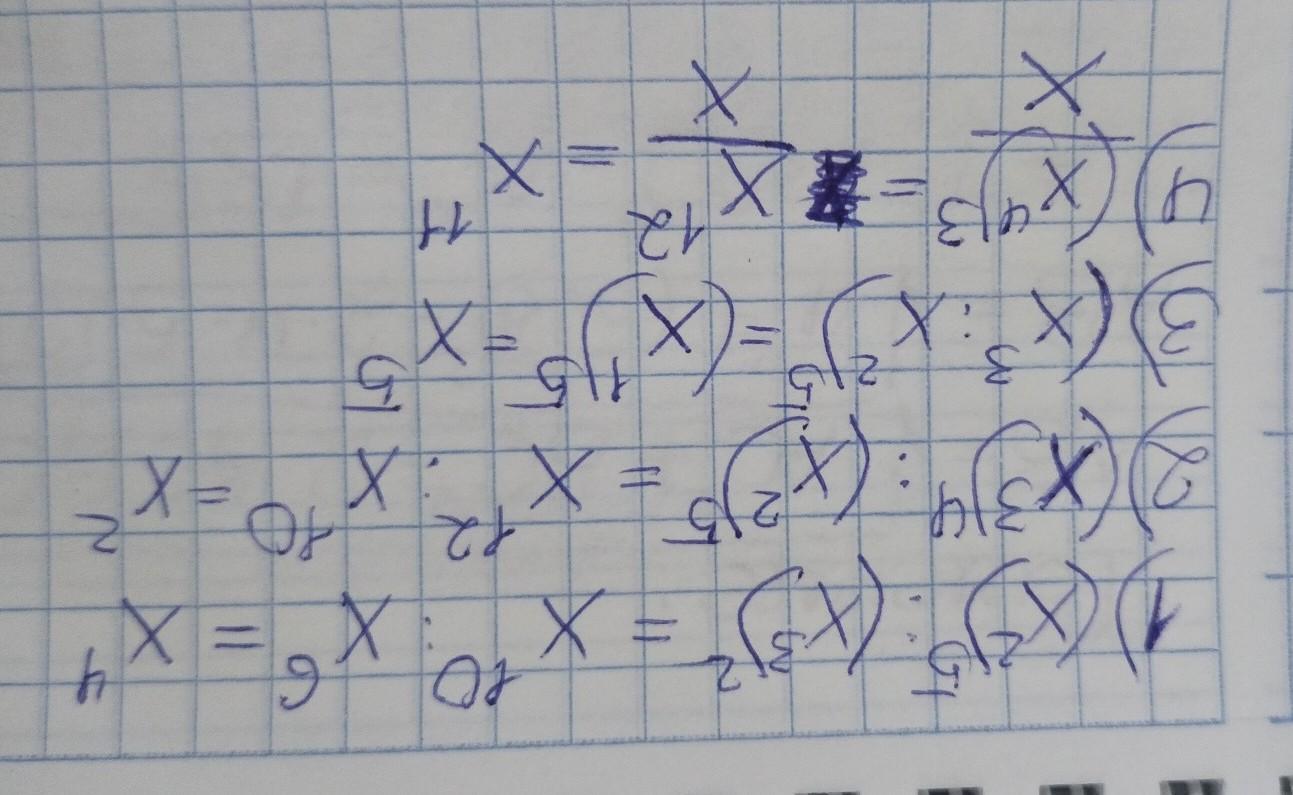 1) (x²)⁵ : (x³)² = x¹⁰ : x⁶ = x⁴
2) (x³)⁴ : (x²)⁵ = x¹² : x¹⁰ = x²
3) (x³ : x²)⁵ = (x¹)⁵ = x⁵
4) (x⁴)³/x = x¹²/x = x¹¹